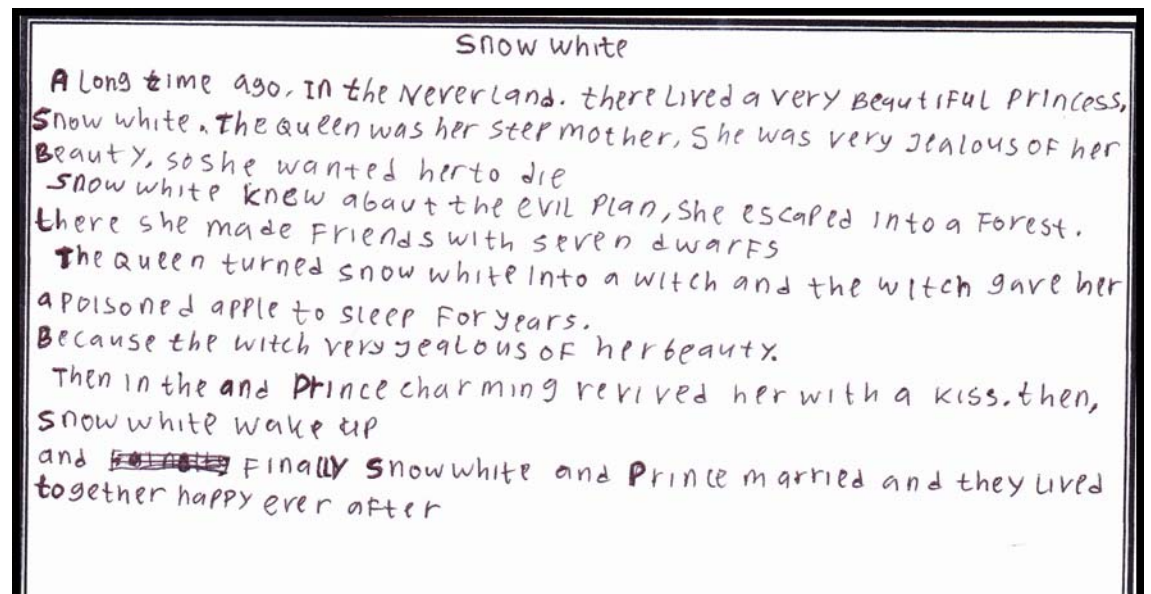 Snow white
A Long time ago, In the Never Land. there Lived a very Beautiful Princess,
Snow white. The Queen was her step mother, She was very Jealous of her
Beauty, so she wanted her to die
Snow white knew abaut the evil Plan, she escaped into a Forest.
there she made Friends with seven dwarfs
The Queen turned snow white into a witch and the witch gave her
a poisoned apple to sleep For years.
Because the witch very jealous of her beauty.
Then in the and Prince charming revived her with a kiss. then,
Snow white wake up
and Finally Snow white and Prince married and they lived
together happy ever after